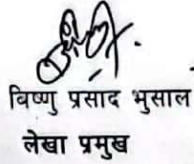 विष्णु प्रसाद भुसाल
लेखा प्रमुख